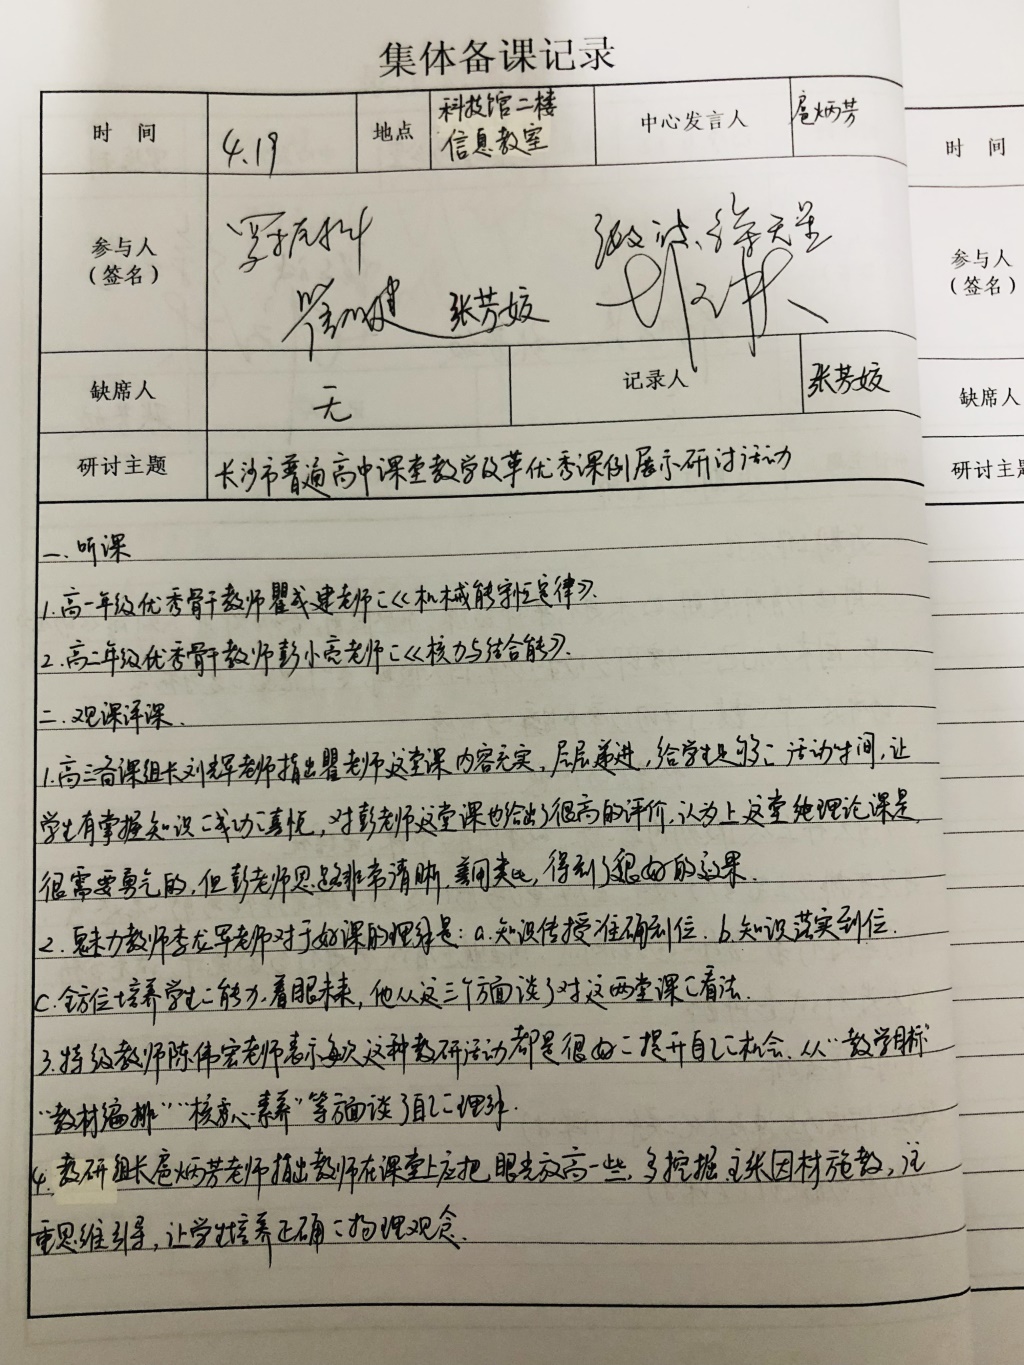 集体备课记录
时 间 4.19 地点 科技馆二楼 信息教室 中心发言人 扈炳芳
时 间
参与人
(签名)
张芳姣
参与人
(签名)
缺席人 无 记录人 张芳姣
缺席人
研讨主题 长沙市普通高中课堂教学改革优秀课例展示研讨活动
研讨主题
一.听课
1.高一年级优秀骨干教师瞿成建老师的《机械能守恒定律》.
2.高二年级优秀骨干教师彭小亮老师的《核力与结合能》.
二.观课评课.
1.高三备课组长刘辉老师指出瞿老师这堂课内容充实,层层递进,给学生足够的活动时间,让
学生有掌握知识的成功的喜悦,对彭老师这堂课也给出了很高的评价,认为上这堂纯理论课是
很需要勇气的,但彭老师思路非常清晰,善用类比,得到了很好的效果.
2.魅力教师李龙军老师对于好课的理解是:a.知识传授准确到位.b.知识落实到位.
C.全方位培养学生的能力,着眼未来,他从这三个方面谈了对这两堂课的看法.
3.特级教师陈伟宏老师表示每次这种教研活动都是很好的提升自己的机会、从“教学目标”
“教材编排”“核心素养”等方面谈了自己的理解.
4.教研组长扈炳芳老师指出教师在课堂上应把眼光放高一些,多挖掘.主张因材施教,注
重思维引导,让学生培养正确的物理观念.